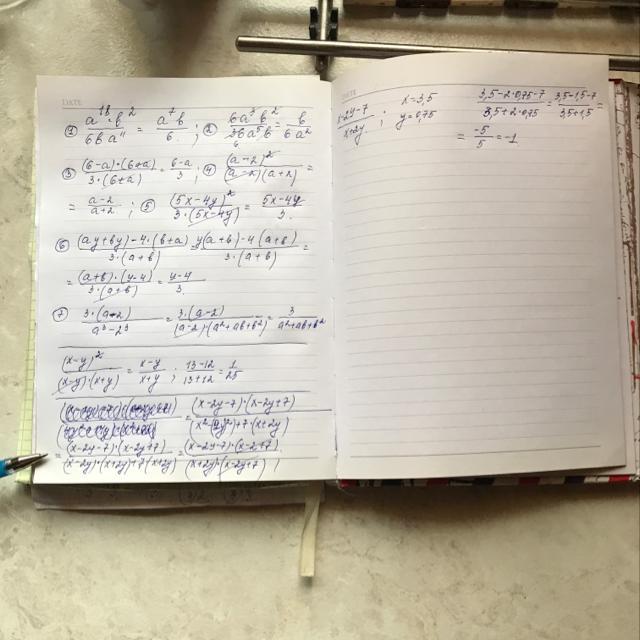 DATE
① a¹⁸b²/6ba¹¹ = a⁷b/6 ; ② 6a³b²/36a⁵b = b/6a²
③ (6-a)·(6+a)/3·(6+a) = 6-a/3 ; ④ (a-2)²/(a-2)(a+2) =
= a-2/a+2 ; ⑤ (5x-4y)²/3·(5x-4y) = 5x-4y/3
⑥ (ay+by)-4·(b+a)/3·(a+b) = y(a+b)-4(a+b)/3·(a+b) =
= (a+b)·(y-4)/3·(a+b) = y-4/3
⑦ 3·(a-2)/a³-2³ = 3·(a-2)/(a-2)·(a²+ab+b²) = 3/a²+ab+b²
(x-y)²/(x-y)(x+y) = x-y/x+y ; 13-12/13+12 = 1/25
(x-2y-7)·(x-2y+7)/x²-(2y)²+7·(x+2y)
= (x-2y-7)·(x-2y+7)/(x-2y)·(x+2y)+7·(x+2y) = (x-2y-7)·(x-2y+7)/(x+2y)·(x-2y+7)
DATE
x-2y-7/x+2y ; x=3,5 y=0,75 3,5-2·0,75-7/3,5+2·0,75 = 3,5-1,5-7/3,5+1,5 =
= -5/5 = -1